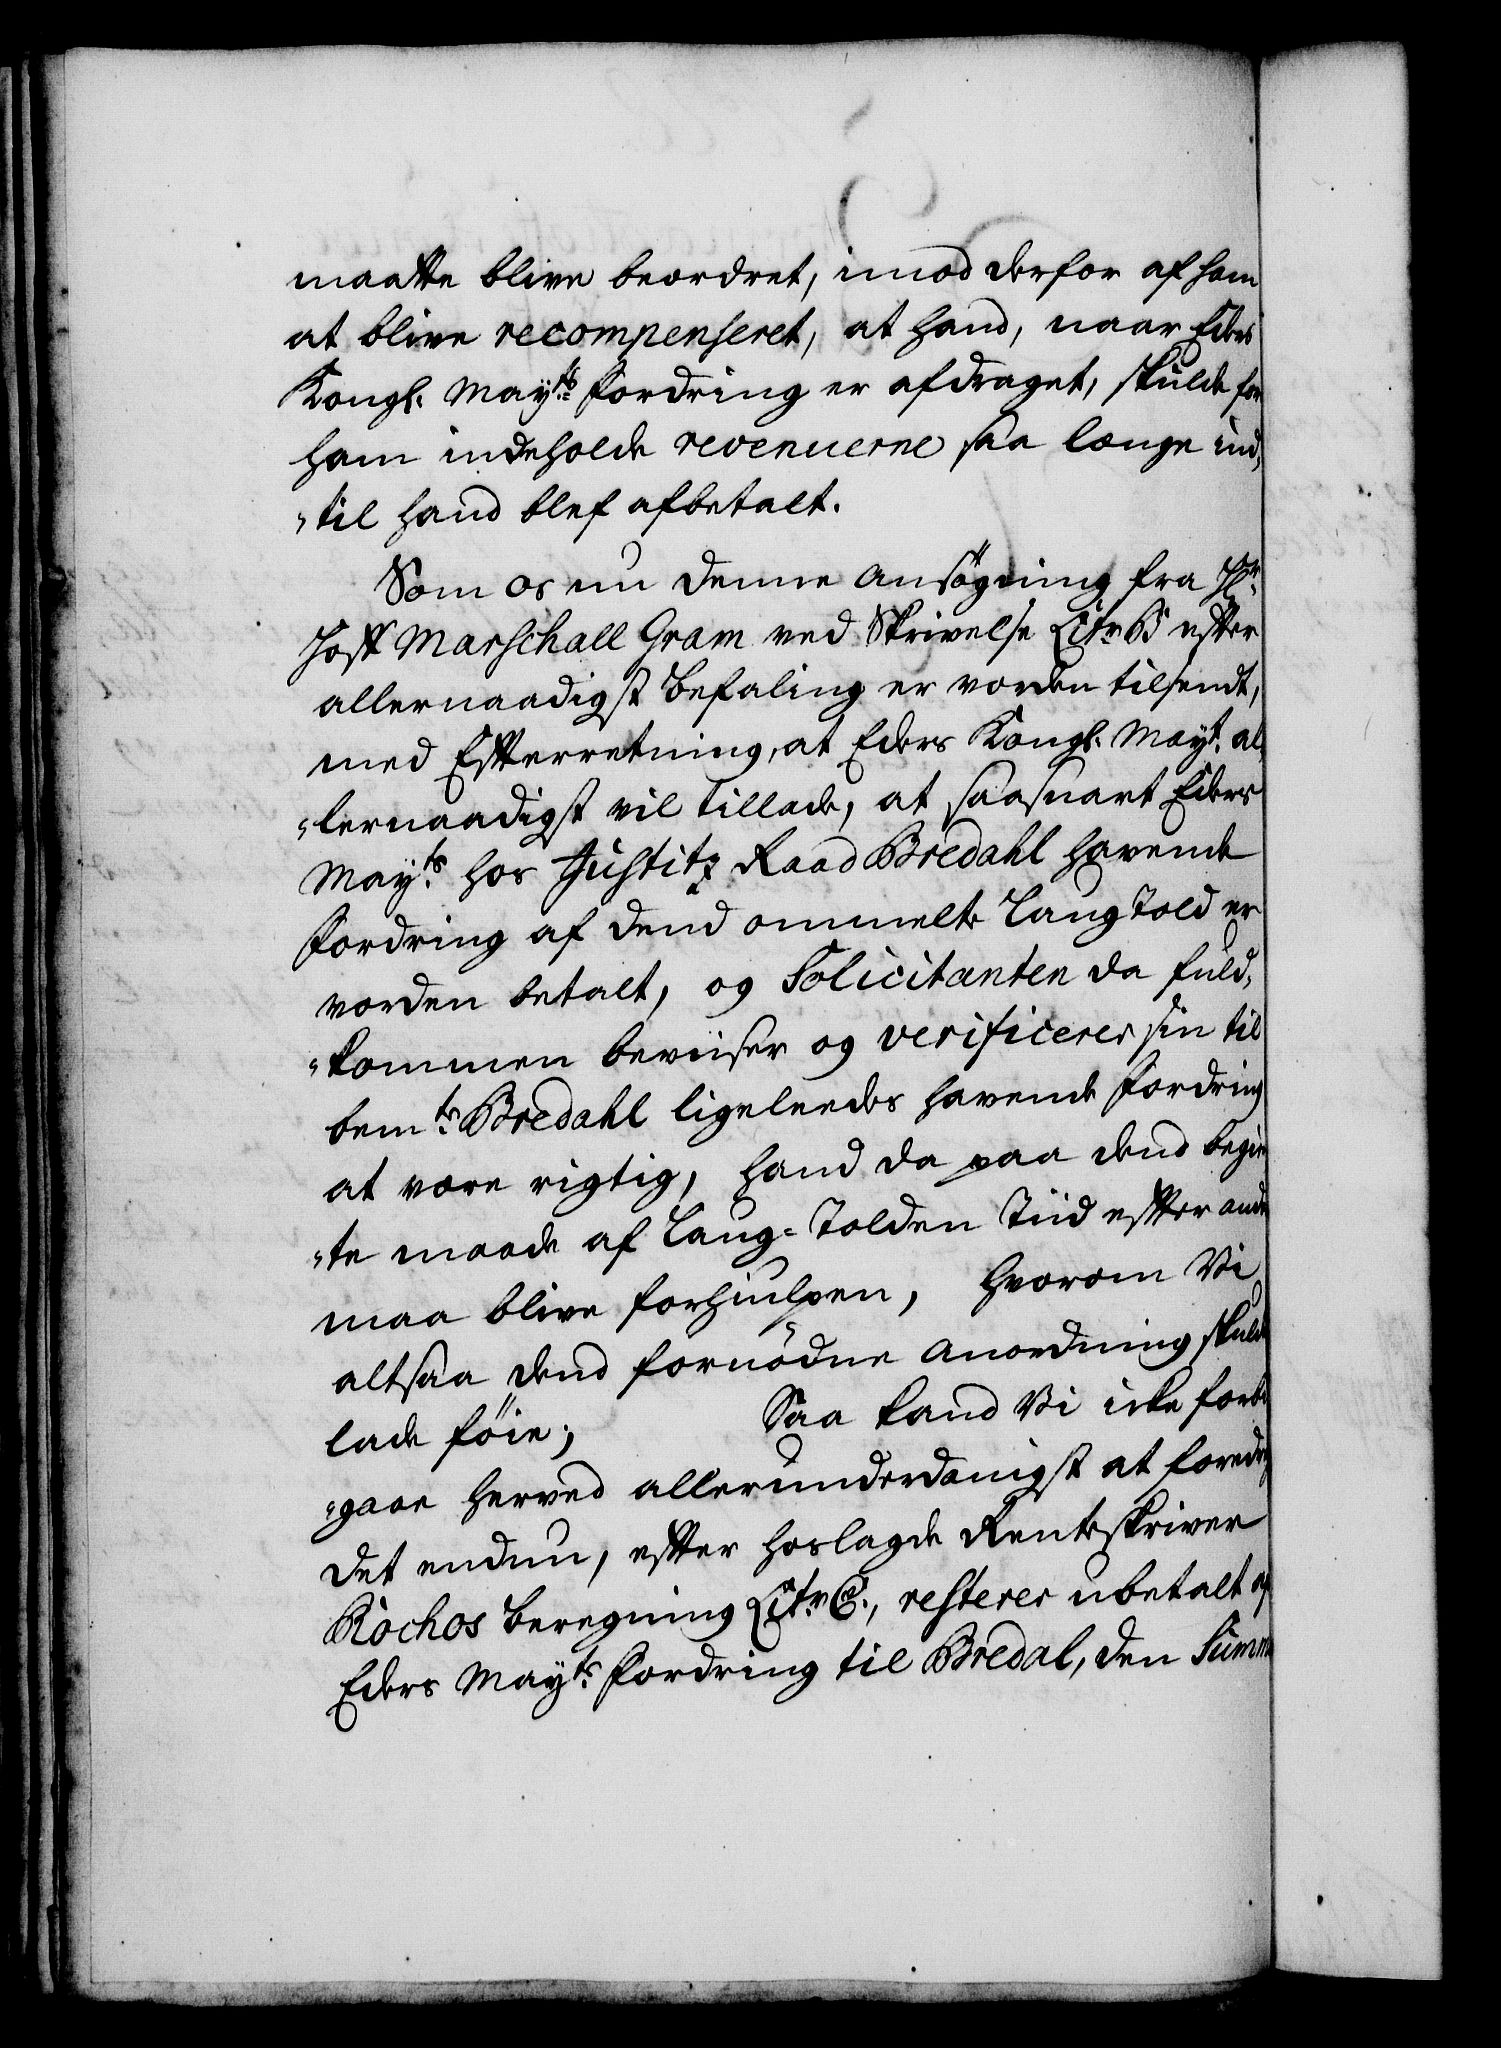 maatte blive beordret, imod derfor af ham
at blive recompenseret, at hand, naar Eders
Kongl. Mayts fordring er afdraget, skulde for
ham indeholde revenuerne saa længe ind,
"til hand blef afbetalt.
Som os nu denne Ansøgning fra Hr.
Hoff Marschall Gram ved Skrivelse Litr. B efter
allernaadigst befaling er vorden tilsendt,
med Efterretning, at Eders Kongl. Mayt. al,
"lernaadigst vil tillade, at saasnart Eders
Mayts hos Justitz Raad Bredahl havende
fordring af dend ommelte Laug Told er
vorden betalt, og Solicitanten da fuld,
"kommen beviiser og verificerer sin til
bemte Bredahl ligeleedes havende fordring
at være rigtig, hand da paa dend begier
"te maade af Laug-Tolden Tiid efter anden
maa blive forhiulpen, hvorom Vi
altsaa dend fornødne Anordning skulde
lade føie; Saa kand Vi icke forbi
"gaae herved allerunderdanigst at foredrage
det endnu, efter hoslagde Renteskriver
Kochos beregning Litr. C., resterer ubetalt af
Eders Mayts fordring til Bredal, den Summa